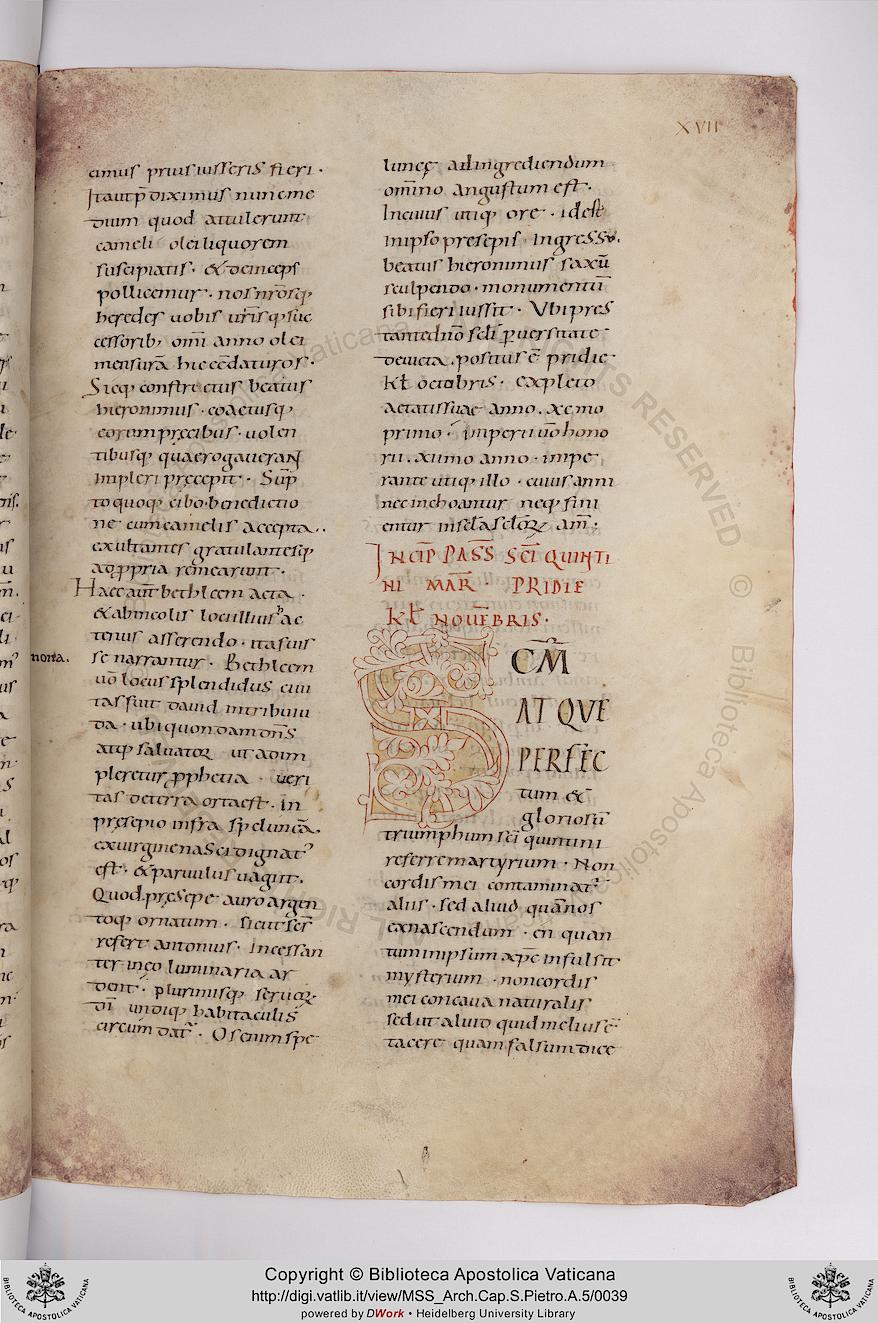 XVII
amus prius iusseris fieri ·
Itautp̄diximus nuncme
dium quod attulerunt
cameli olei liquorem
suscipiatis · & deinceps
pollicemur · nosnr̄osq;
heredes uobis ur̄isq; suc
cessorib; omī anno olei
mensurā hiccēdaturos ·
Sicq; constrectus beatus
hieronimus · coactusq;
eorum precibus · uolen
tibusq; quaerogauerant
impleri precepit · Sūp
toquoq; cibo · benedictio
ne cumcamelis accepta ·
exultantes gratulantesq;
adppria remearunt ·
Haecaut̄ bethleem acta ·
& abincolis locelliushac
tenus asserendo · itasuis
se narrantur · Bethleem
uō locus splendidus ciui
tas fuit dauid intribuiu
da · ubi quondam dn̄s
atq; saluator ut adim
pleretur pphetia · ueri
tas deterra ortaest · In
presepio infra speluncā
exuirgine nasci dignat
est · & paruulus uagiit ·
Quod presepe auro argen
toq; ornatum · sicut sc̄s
refert antonius · Incessan
ter ineo luminaria ar
dent · plurimisq; seruor
dī undiq; habitaculis
circum dat · Os enim spe
nota.
luncę adingrediendum
omīno angustum est ·
Incuius utiq; ore · idest
inipso presepis ingressu ·
beatus hieronimus saxū
sculpendo · monumentū
sibi fieri iussit · Ubi pres
tante dn̄o sc̄li puersitate
deuicta · positus ē pridie ·
kl̄ octobris · expleto
aetatissuae anno · xcmo
primo · imperii uō hono
rii · xiimo anno · impe
rante utiq; illo · cuius anni
nec inchoantur neq; fini
entur inscl̄a sclor am̄ ·
INCIP PASS SCI QUINTI
NI MAR · PRIDIE
KL NOUEBRIS ·
SCM
ATQUE
PERFEC
tum &
gloriosū
triumphum sc̄i quintini
referre martyrium · Non
cordis mei contaminat
aliis · sed aliud quānos
exnascendum · en quan
tum inipsum xp̄c insulsit
mysterium · non cordis
mei concaua naturalis
sed ut aliud quid melius ē
tacere quam falsum dice
Copyright © Biblioteca Apostolica Vaticana
http://digi.vatlib.it/view/MSS_Arch.Cap.S.Pietro.A.5/0039
powered by DWork • Heidelberg University Library